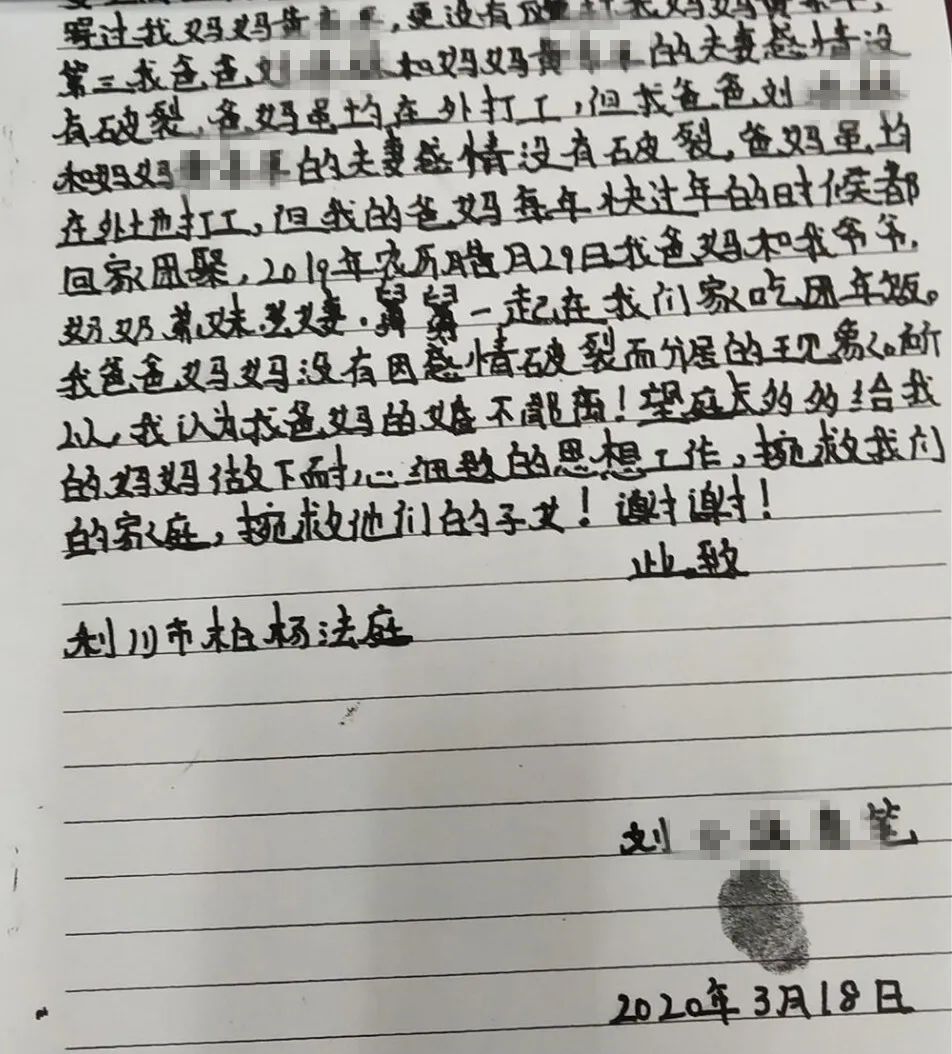 过我妈妈黄，更没有
第三我爸爸刘和妈妈黄的夫妻感情没
有破裂，爸妈虽均在外打工，但我爸爸刘
和妈妈的夫妻感情没有破裂，爸妈虽均
在外地打工，但我的爸妈每年快过年的时候都
回家团聚，2019年农历腊月29日我爸妈和我爷爷，
奶奶弟妹舅舅一起在我们家吃团年饭。
我爸爸妈妈没有因感情破裂而分居的现象。所
以，我认为我爸妈的婚不能离！望庭长多多给我
的妈妈做下耐心细致的思想工作，挽救我们
的家庭，挽救他们的子女！谢谢！
此致
利川市柏杨法庭
刘笔
2020年3月18日